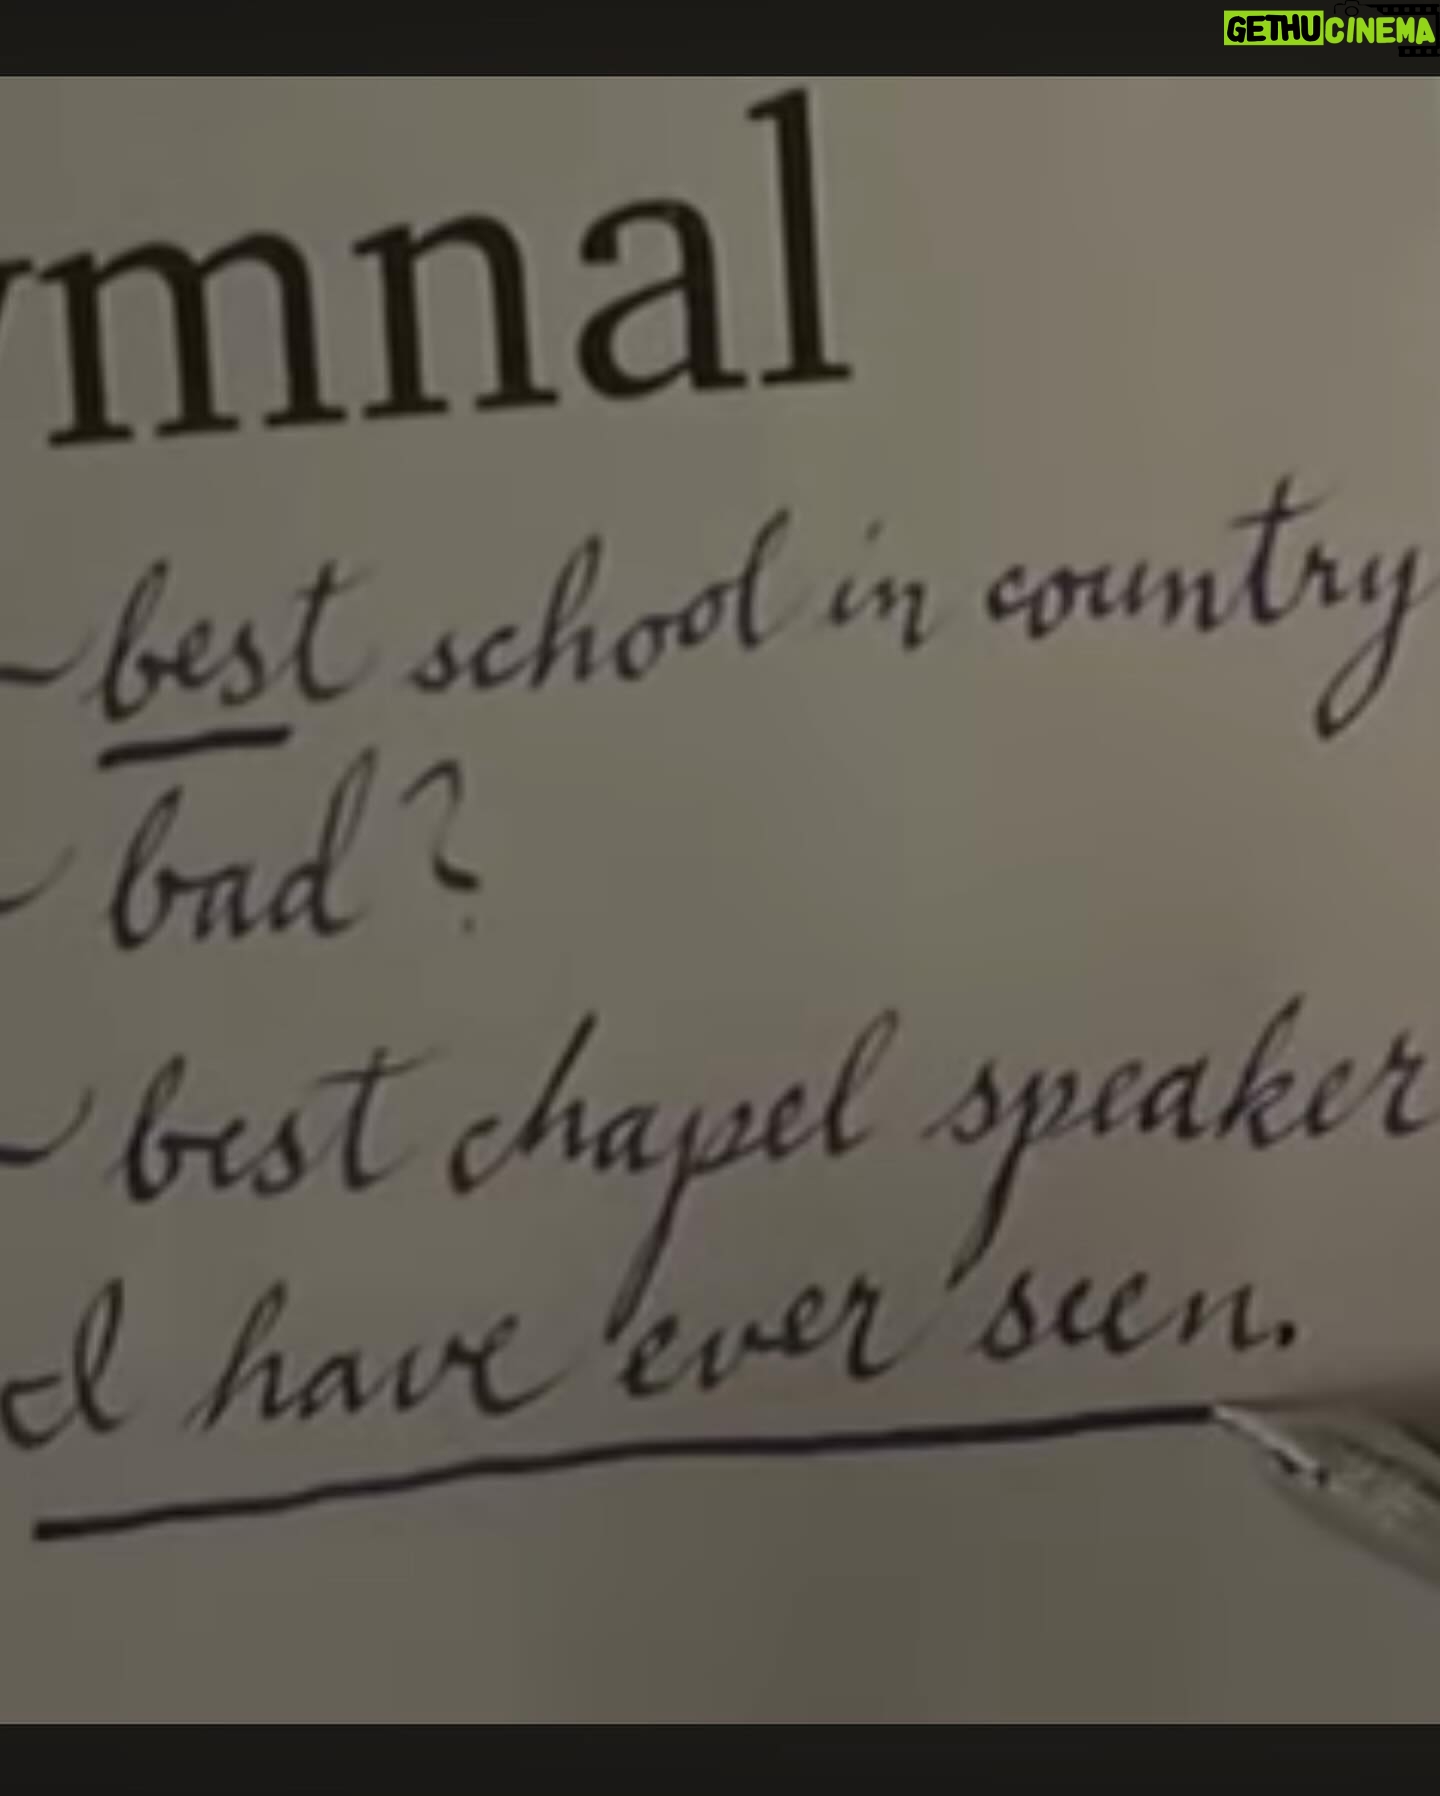 GETHUCINEMA
ymnal
~best school in country
~ bad?
~ best chapel speaker
I have ever seen.